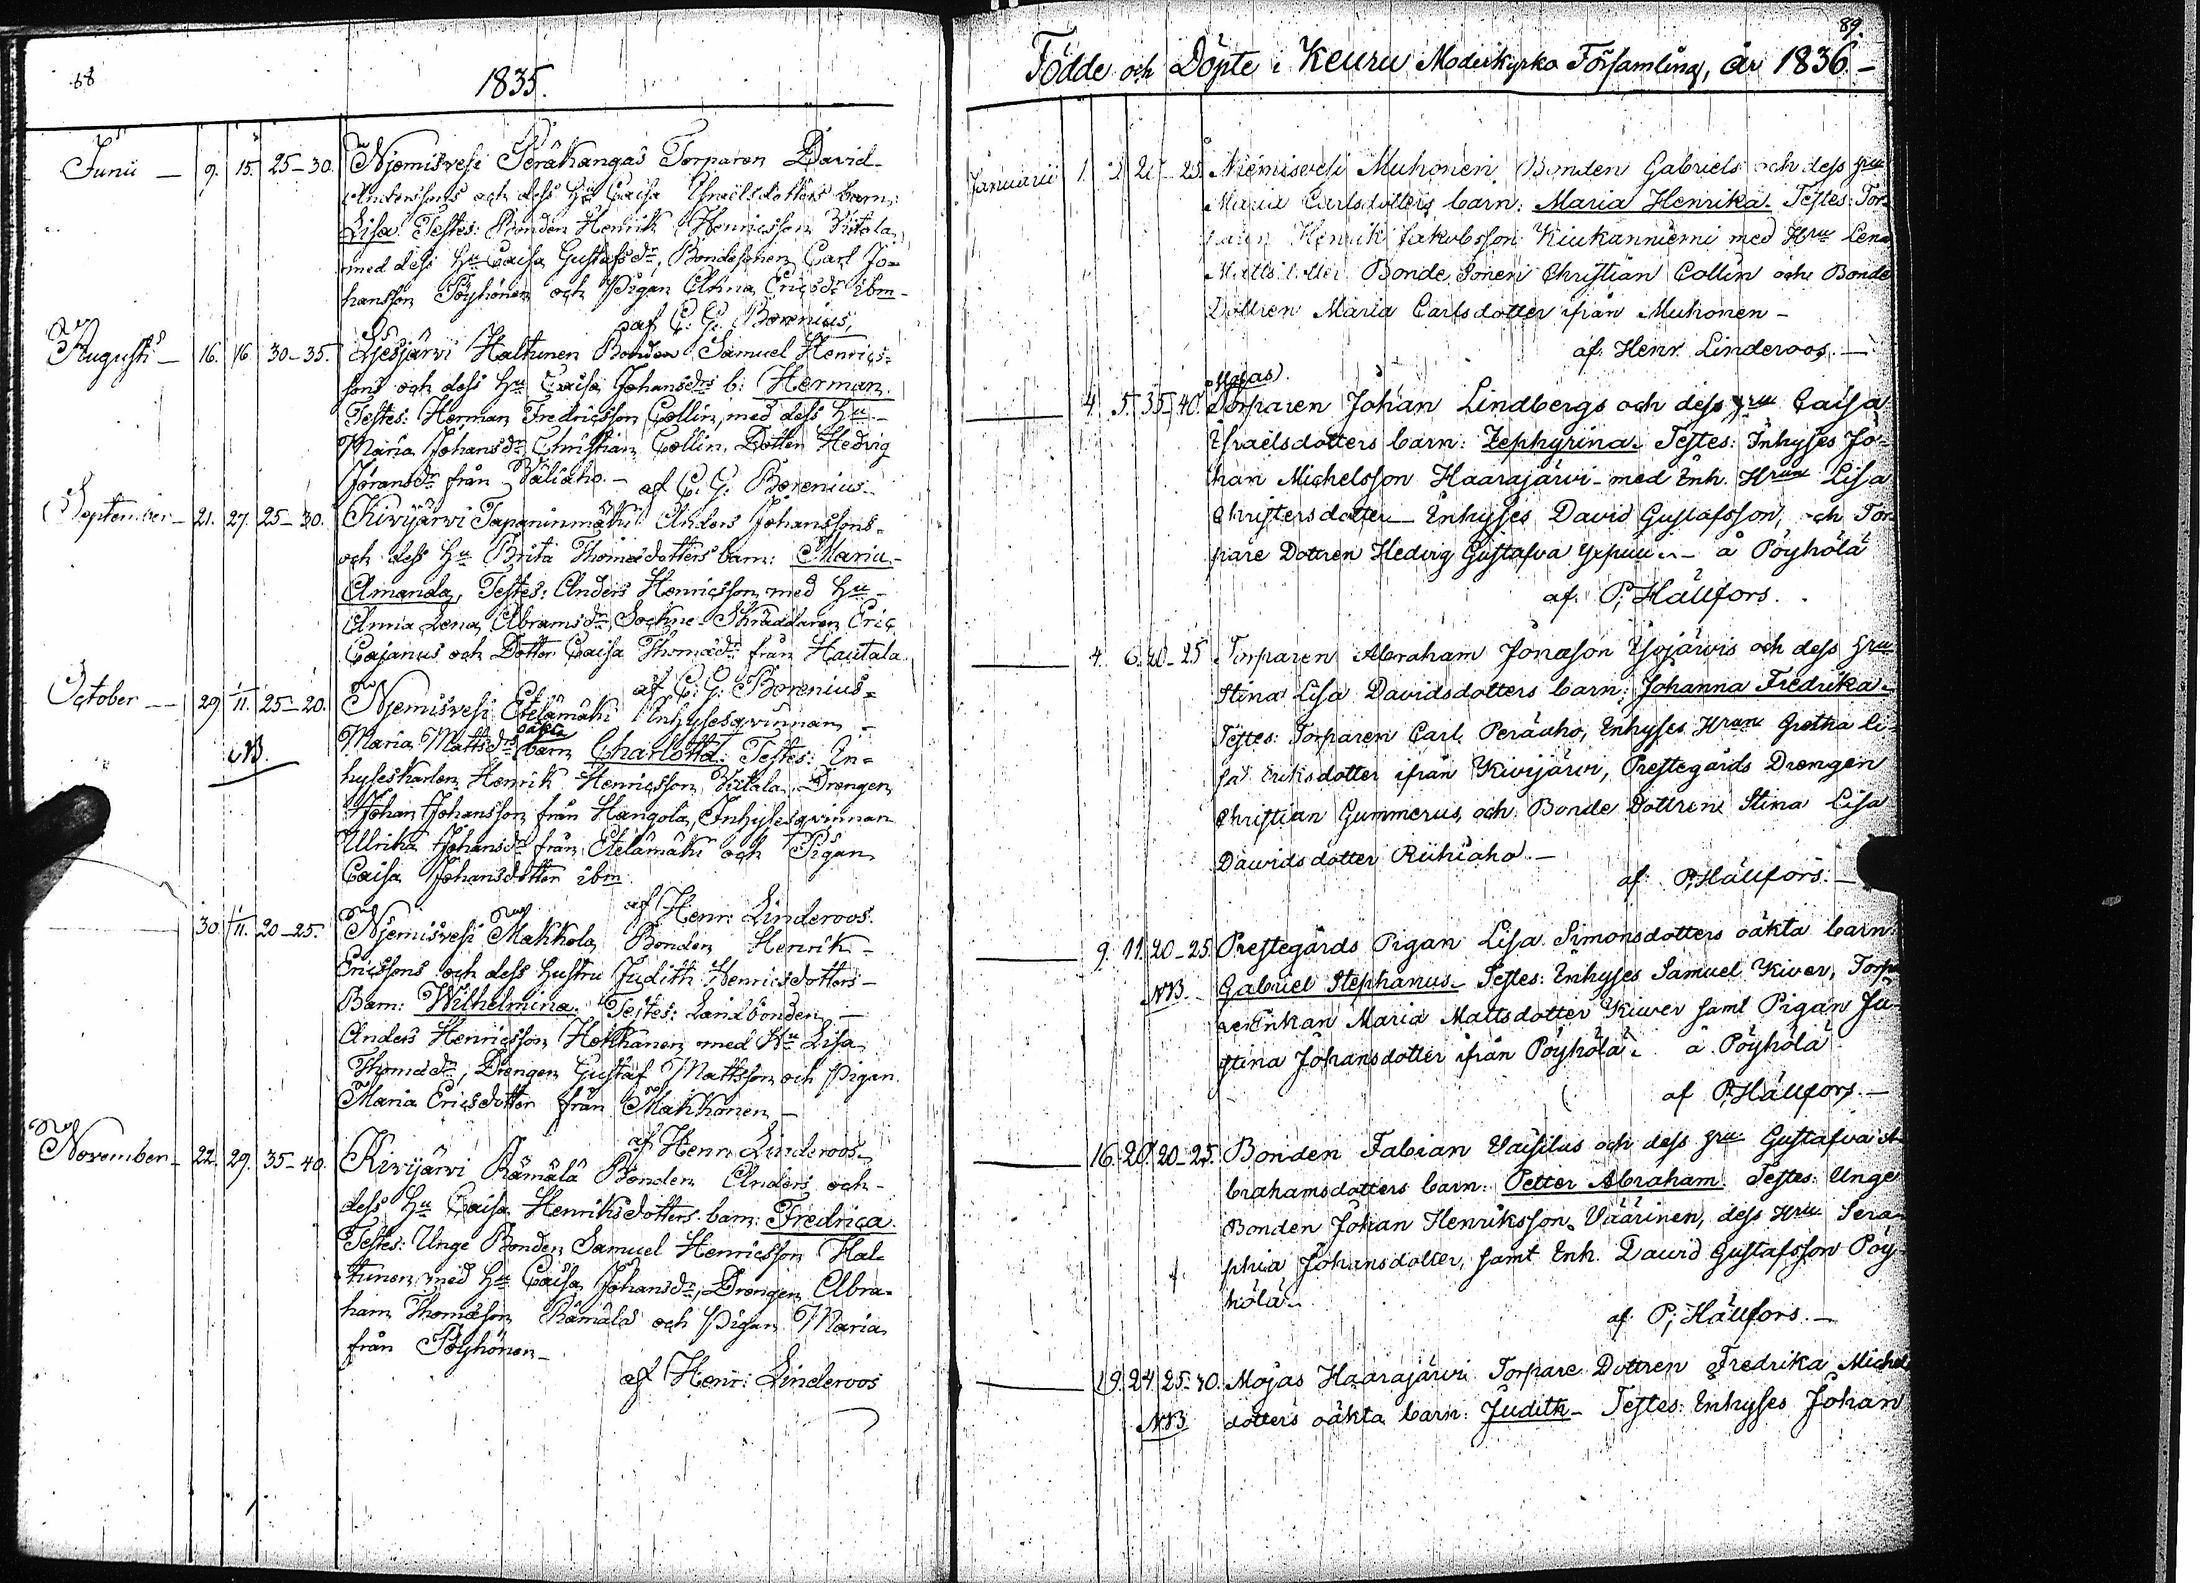 88
1835.
Junii — 9. 15. 25–30. Njemisvesi Peräkangas Torparen David
Anderssons och dess Hu Caisa Israelsdotters barn:
Lisa. Testes: Bonden Henrik Henricsson Kotola
med dess Hu Caisa Gustafsdr, Bondesonen Carl Jo=
hansson Pöyhönen och Pigan Anna Ericsdr ibm –
af C. G. Borenius.
Augusti — 16. 16. 30–35. Liesjärvi Haltunen Bonden Samuel Henrics=
sons och dess Hu Caisa Johansdrs b: Herman.
Testes: Herman Fredricsson Collin, med dess Hu –
Maria Johansdr Christian Collin, Dotter Hedvig
Joransdr från Väliaho. – af C. G. Borenius.
September – 21. 27. 25–30. Kivijärvi Tapaninmäki Anders Johanssons –
och dess Hu Brita Thomædotters barn: Maria
Amanda, Testes: Anders Henricsson med Hu –
Anna Lena Abramsdr, Sockne-Skräddaren Eric
Cajanus och Dotter Caisa Thomædr från Hautala.
af C. G. Borenius.
October — 29 1/11. 25–20. Njemisvesi Etelämäki Inhysesqvinnan –
NB. Maria Mattsdrs oäkta barn Charlotta. Testes: In=
hyseskarlen Henrik Henricsson Kotola, Drengen
Johan Johansson från Hangola, Inhysesqvinnan
Ulrika Johansdr från Etelämäki och Pigan
Caisa Johansdotter ibm.
af Henr: Linderoos.
30 1/11. 20–25. Njemisvesi Makkola Bonden Henrik –
Ericssons och dess Hustru Judith Henricsdotters –
Barn: Wilhelmina. Testes: Landbonden –
Anders Henricsson Hokkanen med Hu Lisa
Thomædr, Drengen Gustaf Mattsson och Pigan
Maria Ericsdotter från Makkonen –
af Henr: Linderoos.
November – 22. 29. 35–40. Kivijärvi Rämälä Bonden Anders och –
dess Hu Caisa Henriksdotters barn: Fredrica.
Testes: Unge Bonden Samuel Henricsson Hal=
tunen med Hu Caisa Johansdr, Drengen Abra=
ham Thomæson Rämälä och Pigan Maria
från Pöyhönen –
af Henr: Linderoos
89.
Födde och Döpte i Keuru Moderkyrko Församling, år 1836. –
Januarii 1. 3. 20–25. Niemisvesi Muhonen Bonden Gabriels och dess Hru
Maria Carlsdotters barn: Maria Henrika. Testes: Tor=
paren Henrik Jakobsson Kiukanniemi med Hru Lena
Mattsdotter, Bonde Sonen Christian Collin och Bonde
Dottren Maria Carlsdotter ifrån Muhonen –
af. Henr. Linderoos. —
Mojas.
4. 5. 35–40. Torparen Johan Lindbergs och dess Hru Caisa
Israelsdotters barn: Zephyrina. Testes: Inhyses Jo=
han Michelsson Haarajärvi med Enk. Hrun Lisa
Christersdotter – Enhyses David Gustafsson, och Tor=
pare Dottren Hedvig Gustafva – å Pöyhölä
af. P. Hällfors.
4. 6. 20–25 Torparen Abraham Jonæson Isojärvis och dess Hru
Stina Lisa Davidsdotters barn: Johanna Fredrika.
Testes: Torparen Carl Peräaho, Enhyses Hrun Gretha Li=
sa Eriksdotter ifrån Kivijärvi, Prestegårds Drengen
Christian Gummerus, och Bonde Dottren Stina Lisa
Davidsdotter Riihiaho. –
af. P. Hällfors. —
9. 11. 20–25. Prestegårds Pigan Lisa Simonsdotters oäkta barn:
NB. Gabriel Stephanus. Testes: Enhyses Samuel Kiver, Torpa
re Enkan Maria Mattsdotter Kiwer samt Pigan Ju=
stina Johansdotter ifrån Pöyhölä. å Pöyhölä
af P. Hällfors. —
16. 20. 20–25. Bonden Fabian Vaisilus och dess Hru Gustafva A=
brahamsdotters barn: Petter Abraham. Testes: Unge
Bonden Johan Henriksson Väärinen, dess Hru Sera=
phia Johansdotter, samt Enh. David Gustafsson Pöy=
hölä.
af. P. Hällfors. —
19. 24. 25–30. Mojas Haarajärvi Torpare Dottren Fredrika Michels
NB dotters oäkta barn: Judith – Testes: Enhyses Johan